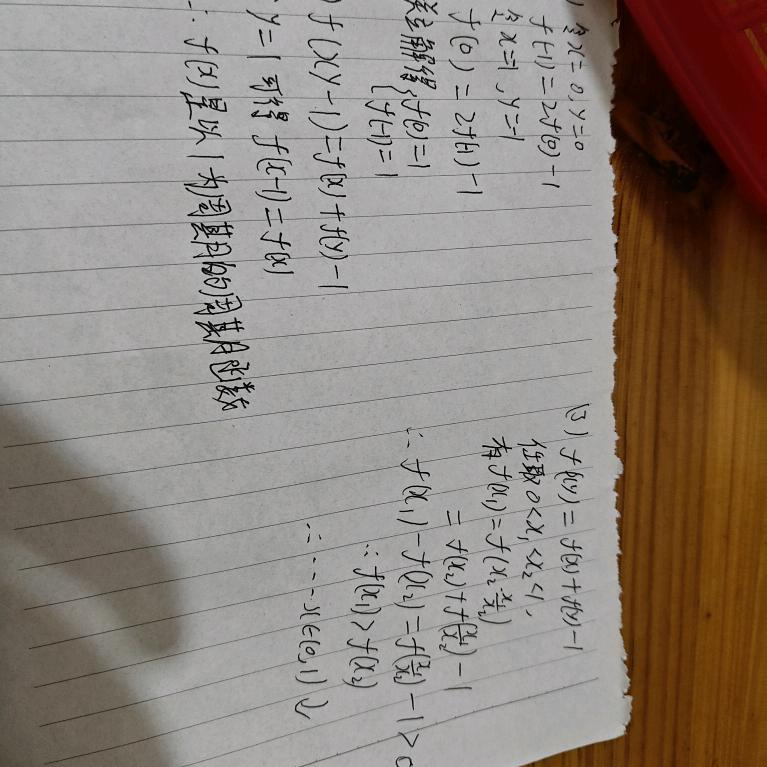 ) 令x=0,y=0
f(-1)=2f(0)-1
令x=1,y=1
f(0)=2f(1)-1
解得{f(0)=1
{f(-1)=1
) f(xy-1)=f(x)+f(y)-1
y=1 可得 f(x-1)=f(x)
∴ f(x)是以1为周期的周期函数
(3) f(xy)=f(x)+f(y)-1
任取0<x₁<x₂<1,
有f(x₁)=f(x₂·x₁/x₂)
=f(x₂)+f(x₁/x₂)-1
∴ f(x₁)-f(x₂)=f(x₁/x₂)-1>0
∴ f(x₁)>f(x₂)
∴ ... x∈(0,1)↓